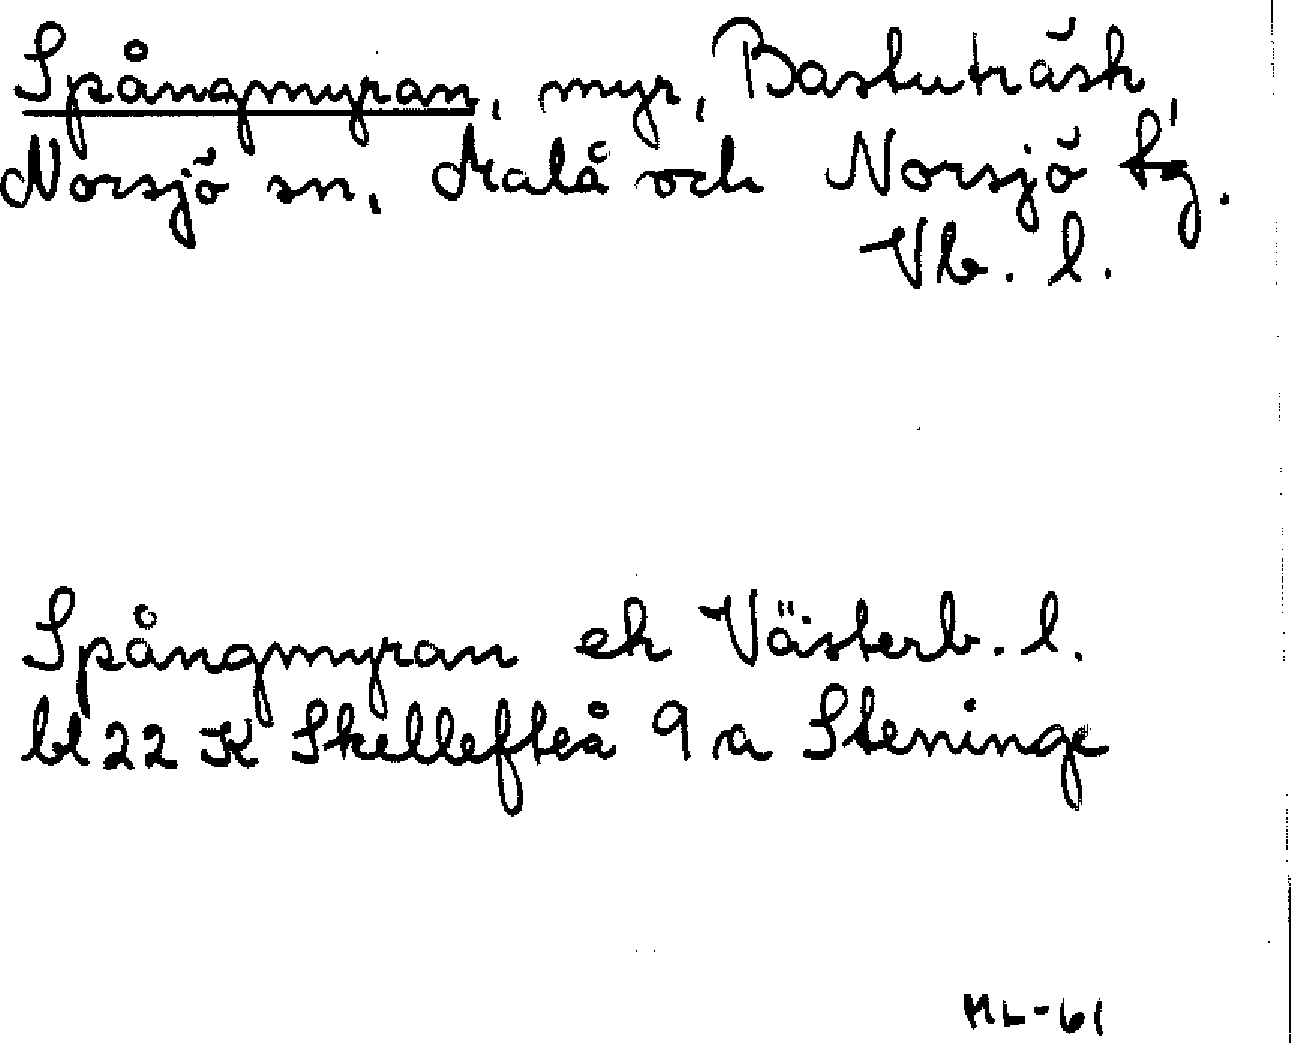 Spångmyran, myr, Bastuträsk,
Norsjö sn, Malå och Norsjö tg.
Vb. l.
Spångmyran ek Västerb. l.
bl 22 K Skellefteå 9 a Steninge
ML-61